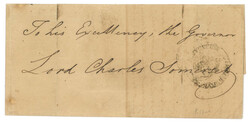 To his Excellency, the Governor
Lord Charles Somerset